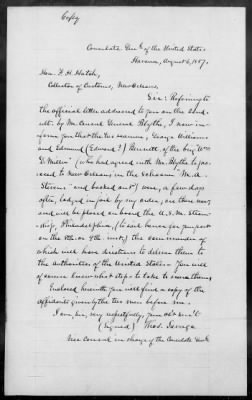 Copy
Consulate Genl of the United States
Havana, August 6, 1857.
Hon. F. H. Hatch,
Collector of Customs, New Orleans.
Sir: Referring to
the official letter addressed to you on the 22nd
ult. by Mr. Consul General Blythe, I now in-
form you that the two seamen, George Williams
and Edmund (Edward?) Bennett of the brig "Wm
D. Miller" (who had agreed with Mr. Blythe to pro-
ceed to New Orleans in the schooner "M. A.
Stevens" and backed out) were, a few days
after, lodged in jail by my order, are there now,
and will be placed on board the U.S.M. Steam-
ship, Philadelphia, (to sail hence for your port
on the 8th or 9th inst.) the commander of
which will have directions to deliver them to
the authorities of the United States. You will
of course know what steps to take to secure them.
Enclosed herewith you will find a copy of the
affidavits given by the two men before me.
I am, Sir, very respectfully, your obt servt
(Signed) Thos. Savage
Vice Consul in charge of the Consulate Genl